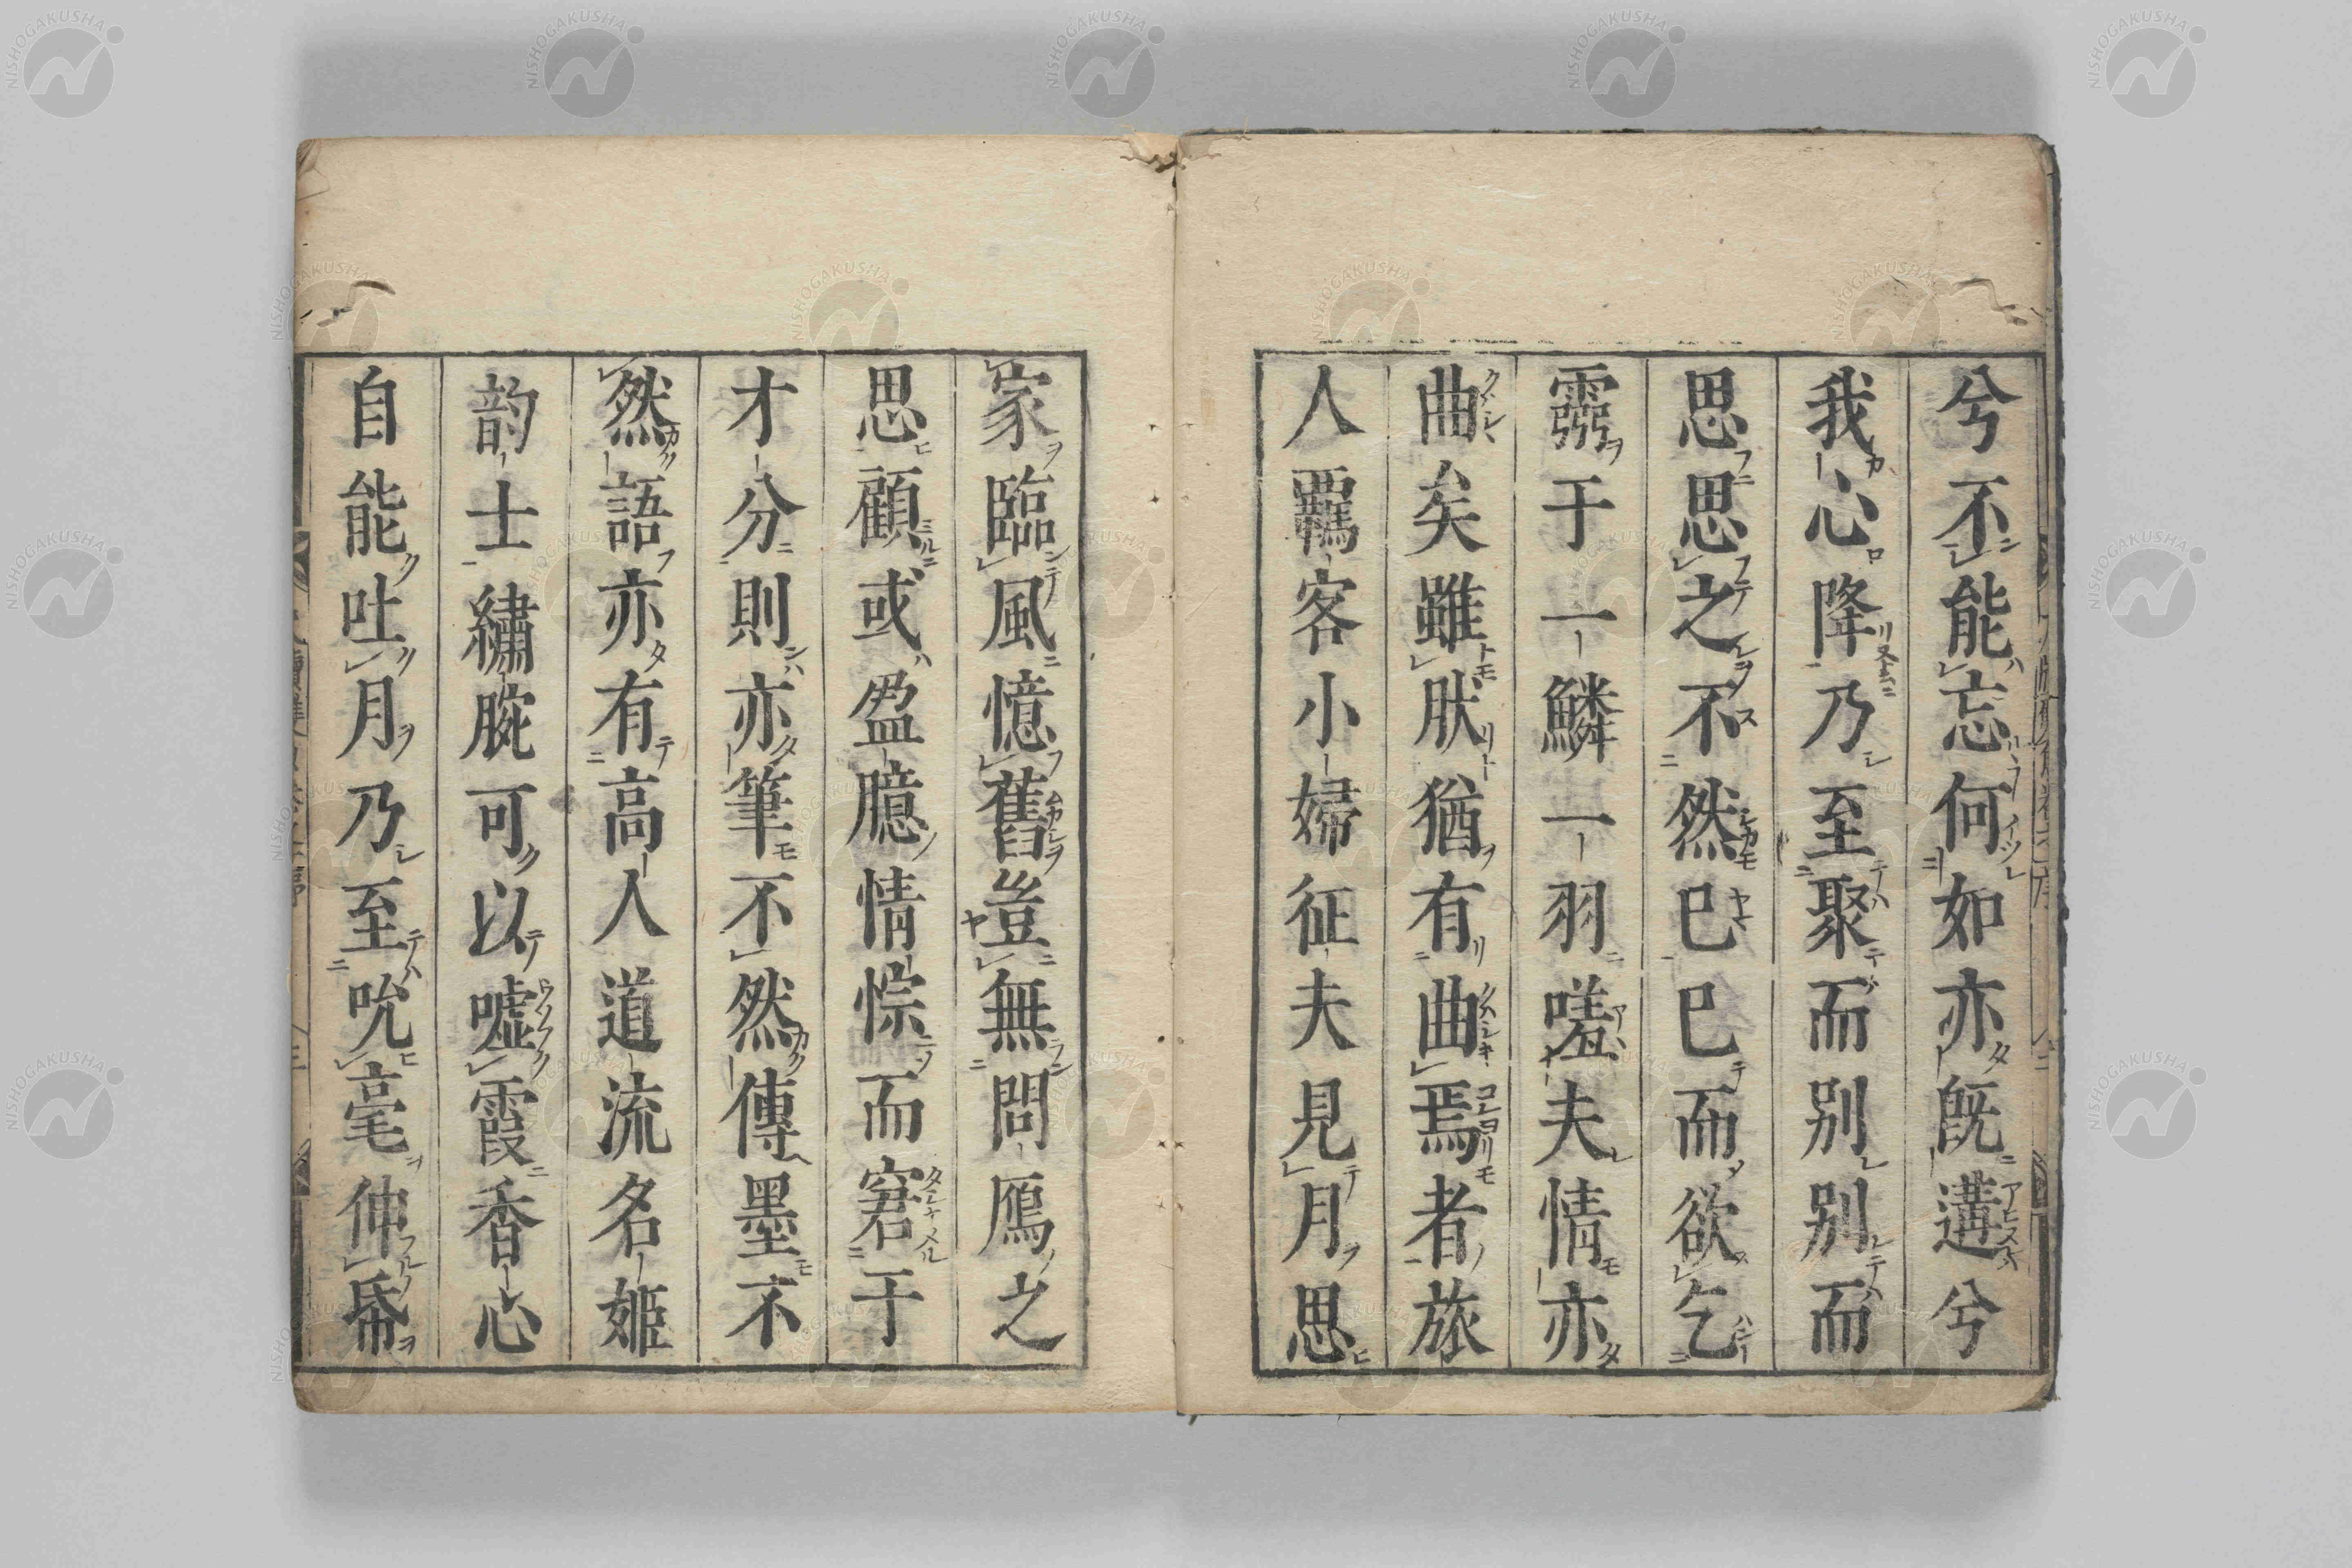 兮不能忘何如亦既遘兮
我心降乃至聚而別別而
思思之不然已已而欲乞
霛于一鱗一羽嗟夫情亦
曲矣雖肰猶有曲焉者旅
人羈客小婦征夫見月思
家臨風憶舊豈無問鴈之
思顧或盈臆情悰而窘于
才分則亦筆不然傳墨不
然語亦有高人道流名姬
韵士繡腕可以噓霞香心
自能吐月乃至吮毫伸𢃇
NISHOGAKUSHA